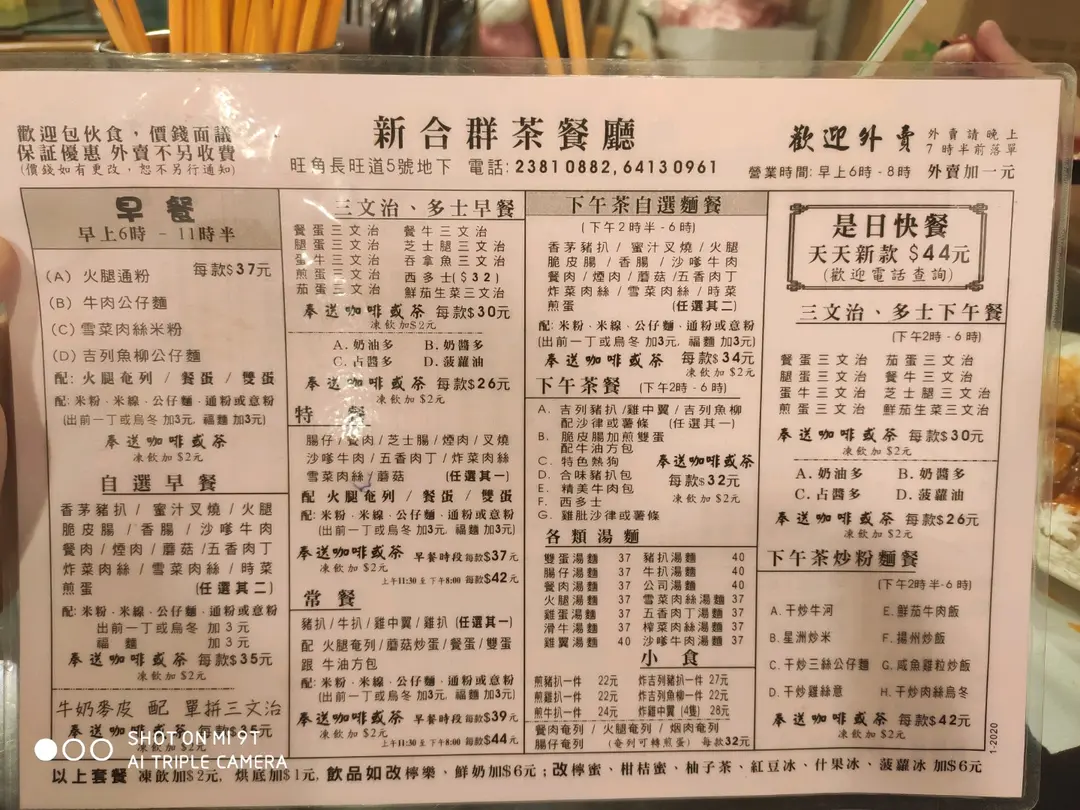 歡迎包伙食，價錢面議
保証優惠 外賣不另收費
(價錢如有更改，恕不另行通知)
新合群茶餐廳
旺角長旺道5號地下 電話: 2381 0882, 6413 0961
歡迎外賣
外賣請晚上
7時半前落單
營業時間: 早上6時 - 8時 外賣加一元
早餐
早上6時 - 11時半
(A) 火腿通粉 每款$37元
(B) 牛肉公仔麵
(C) 雪菜肉絲米粉
(D) 吉列魚柳公仔麵
配: 火腿奄列 / 餐蛋 / 雙蛋
配: 米粉 · 米線 · 公仔麵 · 通粉或意粉
(出前一丁或烏冬 加3元, 福麵 加3元)
奉送咖啡或茶
凍飲加 $2元
自選早餐
香茅豬扒 / 蜜汁叉燒 / 火腿
脆皮腸 / 香腸 / 沙嗲牛肉
餐肉 / 煙肉 / 蘑菇 / 五香肉丁
炸菜肉絲 / 雪菜肉絲 / 時菜
煎蛋 (任選其二)
配: 米粉 · 米線 · 公仔麵 · 通粉或意粉
出前一丁或烏冬 加3元
福麵 加3元
奉送咖啡或茶 每款$35元
凍飲加 $2元
牛奶麥皮 配 單拼三文治
三文治、多士早餐
餐蛋三文治 餐牛三文治
腿蛋三文治 芝士腿三文治
蛋牛三文治 吞拿魚三文治
煎蛋三文治 西多士($32)
茄蛋三文治 鮮茄生菜三文治
奉送咖啡或茶 每款$30元
凍飲加$2元
A. 奶油多 B. 奶醬多
C. 占醬多 D. 菠蘿油
奉送咖啡或茶 每款$26元
凍飲加 $2元
特餐
腸仔 / 餐肉 / 芝士腸 / 煙肉 / 叉燒
沙嗲牛肉 / 五香肉丁 / 炸菜肉絲
雪菜肉絲 / 蘑菇 (任選其一)
配 火腿奄列 / 餐蛋 / 雙蛋
配: 米粉 · 米線 · 公仔麵 · 通粉或意粉
(出前一丁或烏冬 加3元, 福麵 加3元)
奉送咖啡或茶 早餐時段 每款$37元
凍飲加 $2元 上午11:30 至 下午8:00 每款$42元
常餐
豬扒 / 牛扒 / 雞中翼 / 雞扒 (任選其一)
配 火腿奄列 / 蘑菇炒蛋 / 餐蛋 / 雙蛋
跟 牛油方包
配: 米粉 · 米線 · 公仔麵 · 通粉或意粉
(出前一丁或烏冬 加3元, 福麵 加3元)
奉送咖啡或茶 早餐時段 每款$39元
凍飲加 $2元 上午11:30 至 下午8:00 每款$44元
下午茶自選麵餐
(下午2時半 - 6時)
香茅豬扒 / 蜜汁叉燒 / 火腿
脆皮腸 / 香腸 / 沙嗲牛肉
餐肉 / 煙肉 / 蘑菇 / 五香肉丁
炸菜肉絲 / 雪菜肉絲 / 時菜
煎蛋 (任選其二)
配: 米粉 · 米線 · 公仔麵 · 通粉或意粉
(出前一丁或烏冬 加3元, 福麵 加3元)
奉送咖啡或茶 每款$34元
凍飲加 $2元
下午茶餐 (下午2時 - 6時)
A. 吉列豬扒 / 雞中翼 / 吉列魚柳
配沙律或薯條 (任選其一)
B. 脆皮腸加煎雙蛋
配牛油方包
C. 特色熱狗
D. 合味豬扒包
E. 精美牛肉包
F. 西多士
G. 雞肶沙律或薯條
奉送咖啡或茶
每款$32元
凍飲加 $2元
各類湯麵
雙蛋湯麵 37 豬扒湯麵 40
腸仔湯麵 37 牛扒湯麵 40
餐肉湯麵 37 公司湯麵 40
火腿湯麵 37 雪菜肉絲湯麵 37
雞蛋湯麵 37 五香肉丁湯麵 37
滑牛湯麵 37 榨菜肉絲湯麵 37
雞翼湯麵 40 沙嗲牛肉湯麵 37
小食
煎豬扒一件 22元 炸吉列豬扒一件 27元
煎雞扒一件 22元 炸吉列魚柳一件 22元
煎牛扒一件 24元 炸雞中翼 (4隻) 28元
餐肉奄列 / 火腿奄列 / 烟肉奄列
腸仔奄列 (奄列可轉煎蛋) 每款32元
是日快餐
天天新款 $44元
(歡迎電話查詢)
三文治、多士下午餐
(下午2時 - 6時)
餐蛋三文治 茄蛋三文治
腿蛋三文治 餐牛三文治
蛋牛三文治 芝士腿三文治
煎蛋三文治 鮮茄生菜三文治
奉送咖啡或茶 每款$30元
凍飲加 $2元
A. 奶油多 B. 奶醬多
C. 占醬多 D. 菠蘿油
奉送咖啡或茶 每款$26元
凍飲加 $2元
下午茶炒粉麵餐
(下午2時半 - 6時)
A. 干炒牛河 E. 鮮茄牛肉飯
B. 星洲炒米 F. 揚州炒飯
C. 干炒三絲公仔麵 G. 咸魚雞粒炒飯
D. 干炒雞絲意 H. 干炒肉絲烏冬
奉送咖啡或茶 每款$42元
凍飲加 $2元
1-2020
以上套餐 凍飲加$2元, 烘底加$1元, 飲品如改檸樂、鮮奶加$6元；改檸蜜、柑桔蜜、柚子茶、紅豆冰、什果冰、菠蘿冰 加$6元
SHOT ON MI 9T
AI TRIPLE CAMERA